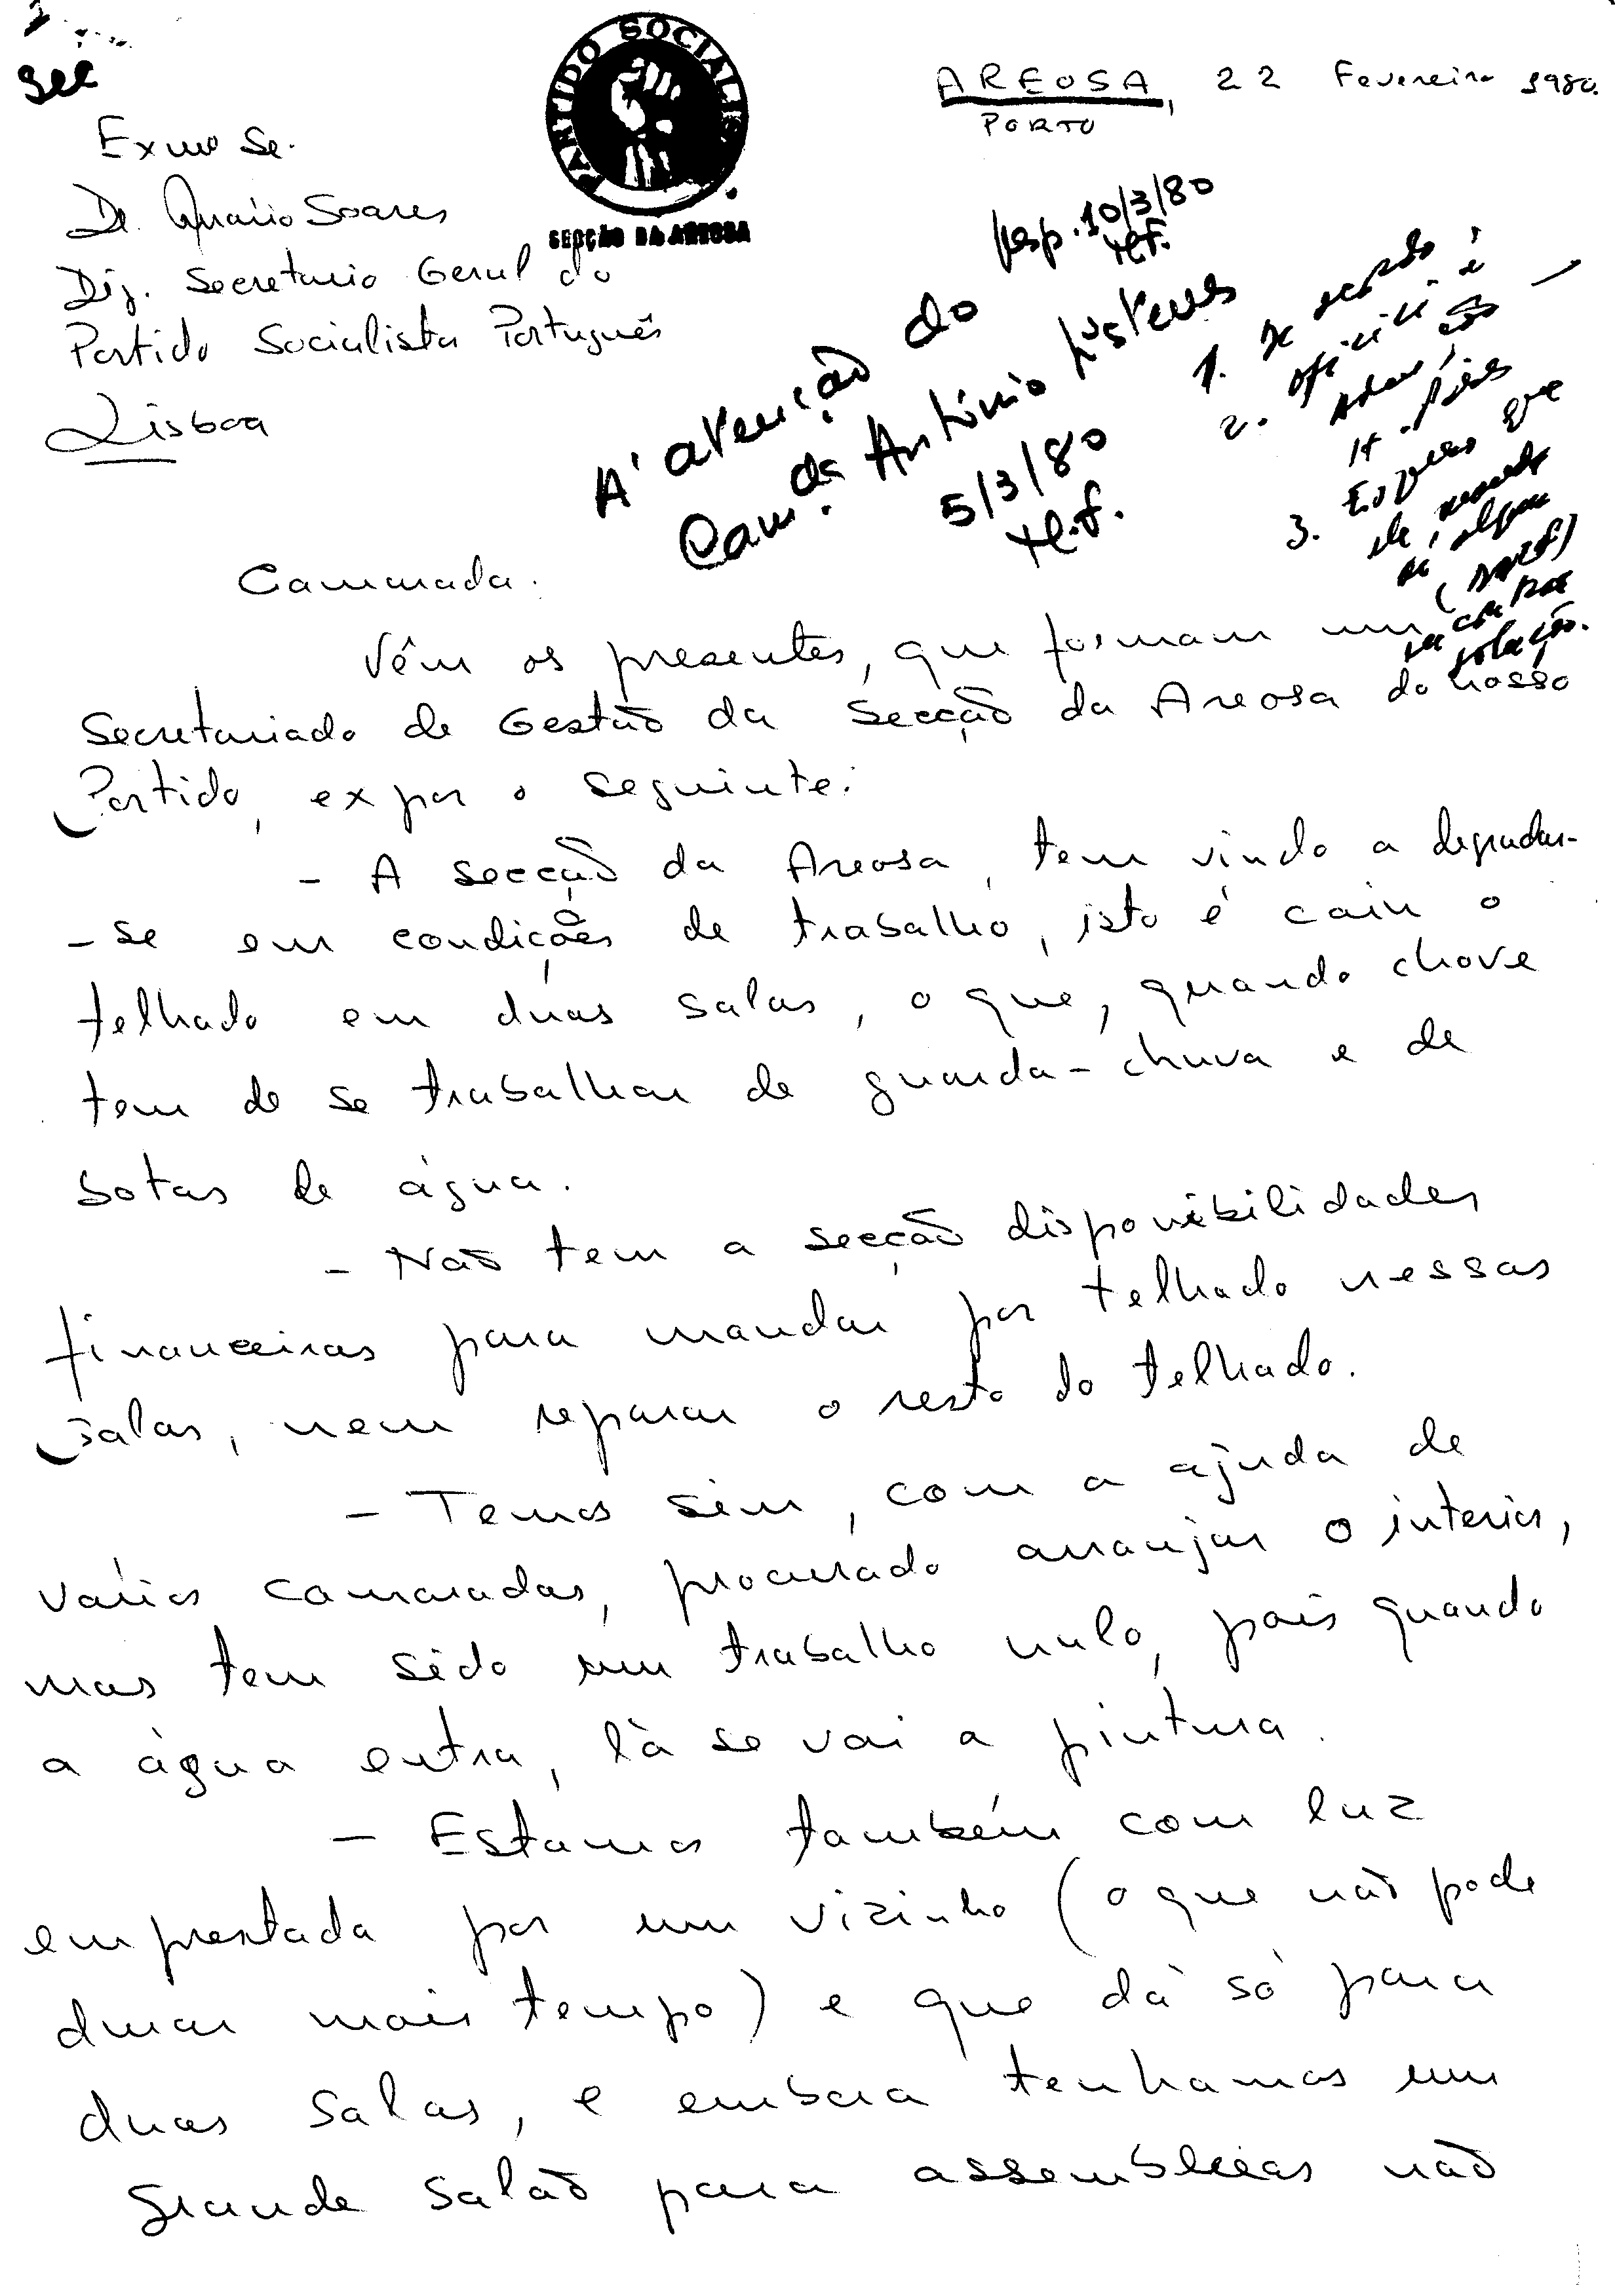 Sec
PARTIDO SOCIALIS.
SECÇÃO DA AREOSA
AREOSA, 22 Fevereiro 1980.
PORTO
Exmo Sr.
Dr. Mário Soares
Dig. Secretario Geral do
Partido Socialista Português
Lisboa
Resp. 10/3/80
H.F.
A' atenção do
Cam. da António Esteves
5/3/80
H.F.
1.
2.
3. que
solução.
Camarada:
Vêm os presentes, que formam um
Secretariado de Gestão da Secção da Areosa do nosso
Partido, expor o seguinte:
- A secção da Areosa, tem vindo a degradar-
-se em condições de trabalho, isto é caiu o
telhado em duas salas, o que, quando chove
tem de se trabalhar de guarda-chuva e de
botas de água.
- Não tem a secção disponibilidades
financeiras para mandar por telhado nessas
salas, nem reparar o resto do telhado.
- Temos sim, com a ajuda de
vários camaradas, procurado arranjar o interior,
mas tem sido um trabalho nulo, pois quando
a água entra, lá se vai a pintura.
- Estamos também com luz
emprestada por um vizinho (o que não pode
durar mais tempo) e que dá só para
duas salas, e embora tenhamos um
grande salão para assembleias não